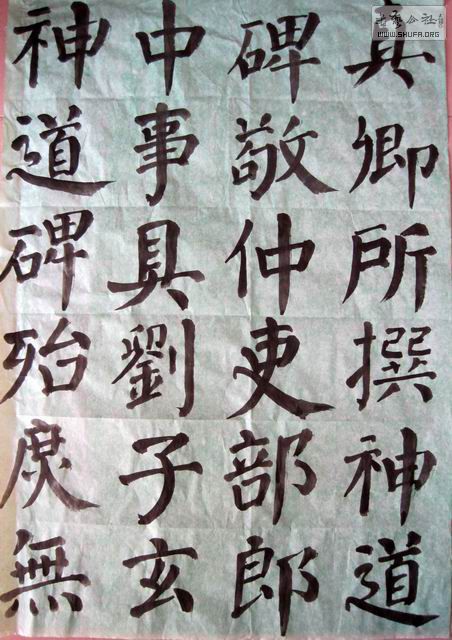 真卿所撰神道
碑敬仲吏部郎
中事具劉子玄
神道碑殆庶無
WWW.SHUFA.ORG